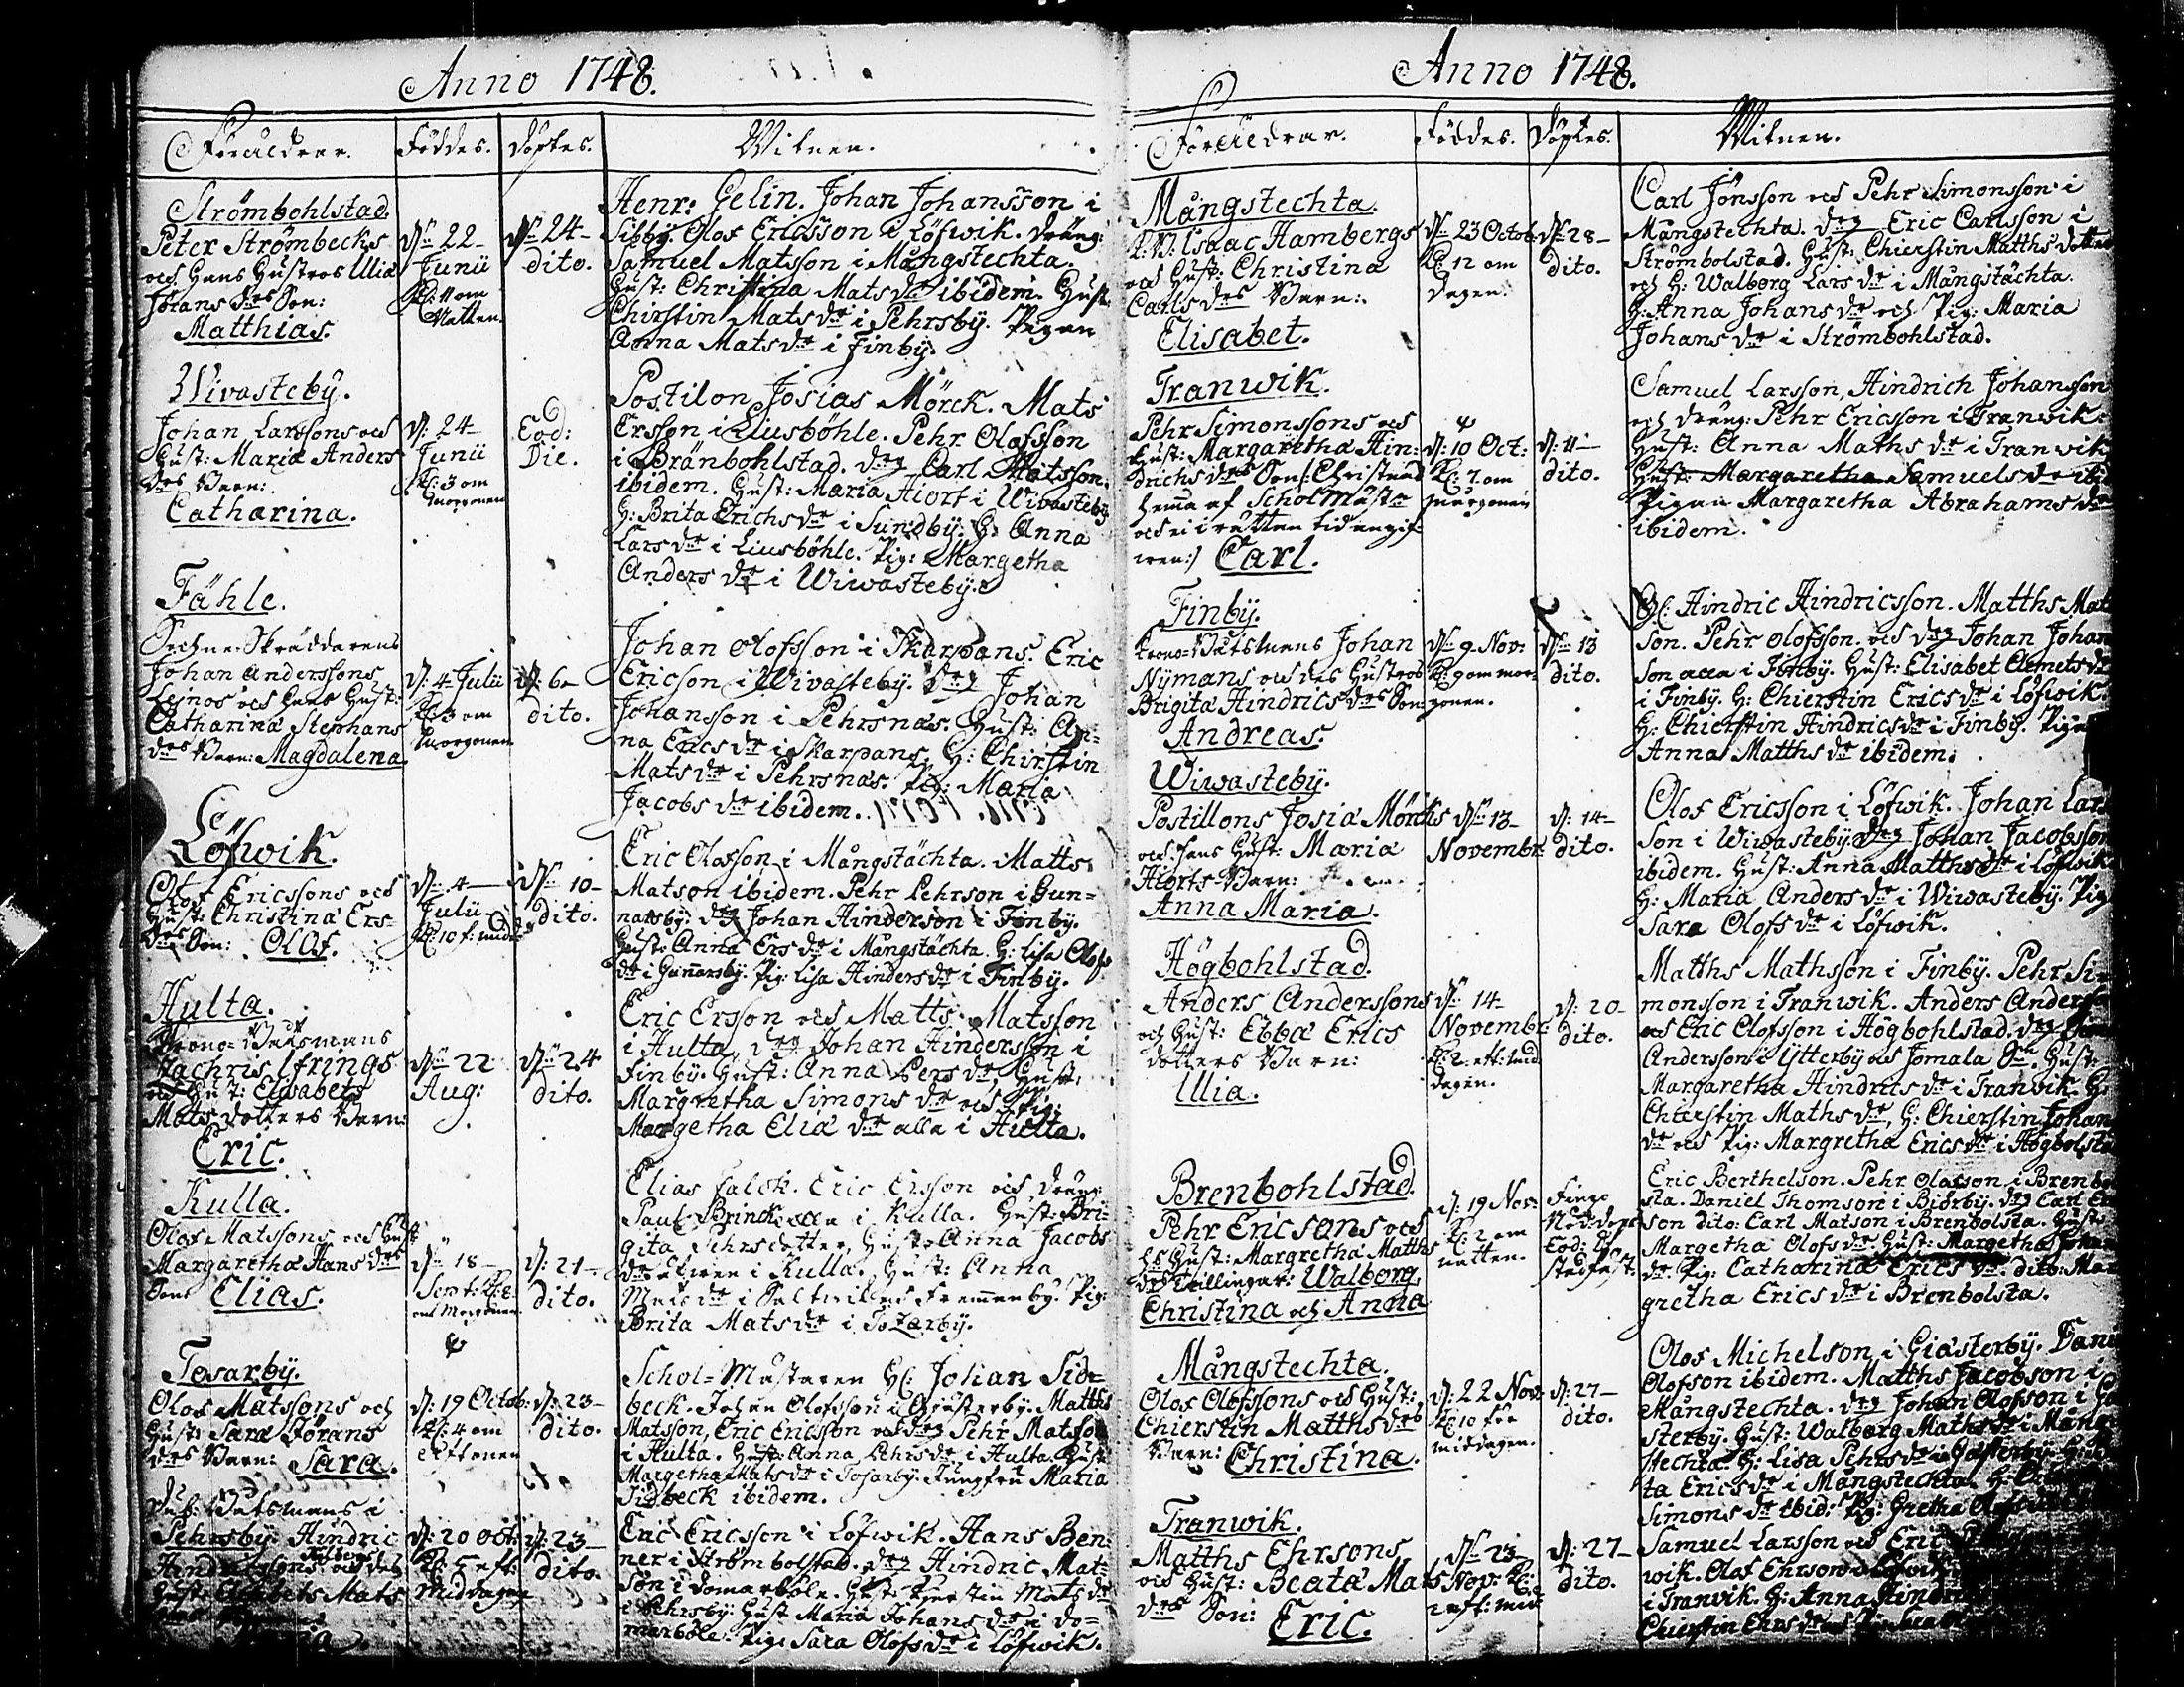 Anno 1748.
Föräldrar. Föddes. Döptes. Witnen.
Strømbohlstad.
Peter Strømbecks
och Hans Hustros Ulia
Jørans drs Son:
Matthias.
dn 22
Junii
Kl: 11 om
Natten.
dn 24
dito.
Henr: Gelin. Johan Johansson i
Sibbÿ. Olof Ericsson i Löfwik. dräng:
Samuel Matsson i Mångstechta.
Hust: Christina Mats dr ibidem. Hust:
Chirstin Mats dr i Pehrsbÿ. Pigan
Anna Mats dr i Finbÿ.
Wivastebÿ.
Johan Larssons och
Hust: Maria Anders
drs Barn:
Catharina.
d: 24
Junii
Kl: 3 om
morgonen
Eod:
Die.
Postilon Josias Mörck. Mats
Ersson i Liusböhle. Pehr Olofsson
i Bränbohlstad. drg Carl Matsson
ibidem. Hust: Maria Hiort i Wivastebÿ
H: Brita Erichs dr i Sundbÿ. H: Anna
Lars dr i Liusböhle. Pig: Margetha
Anders dr i Wiwastebÿ.
Fähle.
Sochne-Skräddarens
Johan Anderssons
Leinos och Hans Hust:
Catharina Stephans
drs Barn: Magdalena.
d: 4 Julii
Kl: 3 om
morgonen
d: 6
dito.
Johan Olofsson i Skarpans. Eric
Ericson i Wivastebÿ. drg Johan
Johansson i Pehrsnäs. Hust: An-
na Erics dr i Skarpans. H: Chirstin
Mats dr i Pehrsnäs. Pig: Maria
Jacobs dr ibidem.
Löfwik.
Olof Ericssons och
Hust: Christina Ers-
drs Son: Olof.
dn 4
Julii
Kl: 10 f: midd
dn 10
dito.
Eric Olasson i Mångstächta. Matts
Matson ibidem. Pehr Pehrson i Gun-
narsbÿ. drg Johan Hinderson i Finbÿ.
Hust: Anna Ers dr i Mångstächta. H: Lisa Olofs
dr i Gunnarsbÿ. Pig: Lisa Hinders dr i Finbÿ.
Hulta.
Krono-Båtsmans
Zachris Ifrings
och Hust: Elisabets
Mats dotters Barn:
Eric.
dn 22
Aug:
dn 24
dito.
Eric Ersson och Matts Matsson
i Hulta, drg Johan Hindersson i
Finbÿ. Hust: Anna Pers dr, Hust:
Margretha Simons dr och Pig:
Margetha Eliä dr alla i Hulta.
Kulla.
Olof Matssons och Hust
Margaretha Hans drs
Son Elias.
dn 18
Sept: Kl: 8
om Morgonen
d: 21
dito.
Elias Falck. Eric Ersson och dräng
Paul Brinck alla i Kulla. Hust: Bri-
gita Pehrs dotter, Hust: Anna Jacobs
dr i Kulla. Hust: Anna
Mats dr i Saltwik Fremmanby. Pig:
Brita Mats dr i Tozarbÿ.
Tosarbÿ.
Olof Matssons och
Hust: Sara Jörans
drs Barn: Sara.
d: 19 Octob:
Kl: 4 om
Aftonen
d: 23
dito.
Schol-Mästaren H: Johan Sid-
beck. Johan Olofsson i Giästerby. Matths
Matsson, Eric Ericson och drg Pehr Matsson
i Hulta. Hust: Anna Pehrs dr i Hulta. Hust:
Margetha Mats dr i Tosarbÿ. Jungfru Maria
Sidbeck ibidem.
Båtsmans i
Pehrsbÿ Hindric
d: 20 Oct:
Kl: 5 eft:
middagen
d: 23
dito.
Eric Ericsson i Löfwik. Hans Ben-
ner i Strömbolstad. drg Hindric Mat-
son i Domarböle. Hust: Kierstin Mats dr
i Pehrsbÿ. Hust Maria Johans dr i Do-
marböle. Pig: Sara Olofs dr i Löfwik.
Anno 1748.
Föräldrar. Föddes. Döptes. Witnen.
Mångstechta.
Isaac Hambergs
och Hust: Christina
Carls drs Barn:
Elisabet.
dn 23 Octob:
Kl: 12 om
dagen.
dn 28
dito.
Carl Jönsson och Pehr Simonsson i
Mångstechta. drg Eric Carlsson i
Strömbolstad. Hust: Chierstin Matths dotter
och H: Walborg Lars dr i Mångstächta.
H: Anna Johans dr och Pig: Maria
Johans dr i Strömbohlstad.
Tranwik.
Pehr Simonssons och
Hust: Margaretha Hin-
drichs drs Son (: Christnad
hema af Scholmäst
och ei i rättan tid angif-
wen:) Carl.
d: 10 Oct:
Kl: 7. om
morgonen
d: 11
dito.
Samuel Larsson, Hindrich Johansson
och dräng: Pehr Ericsson i Tranwik.
Hust: Anna Maths dr i Tranwik
Hust: Margaretha Samuels dr ibi
Pigan Margaretha Abrahams dr
ibidem.
Finbÿ.
Krono-Båtsmans Johan
Nÿmans och des Hustros
Brigita Hindrics drs Son:
Andreas.
dn 9 Nov:
Kl: 9 om mor-
gonen.
dn 13
dito.
H: Hindric Hindricsson. Matths Mat
son. Pehr Olofsson. och drg Johan Johan
son alla i Finbÿ. Hust: Elisabet Clemets dr
i Finbÿ. H: Chierstin Erics dr i Löfwik.
H: Chierstin Hindrics dr i Finbÿ. Piga
Anna Matths dr ibidem.
Wiwastebÿ.
Postillons Josiä Mörcks
och hans Hust: Maria
Hiorts Barn:
Anna Maria.
dn 13
Novembr:
d: 14
dito.
Olof Ericsson i Löfwik. Johan Lars
son i Wiwastebÿ. drg Johan Jacobsson
ibidem. Hust: Anna Matths dr i Löfwik
H: Maria Anders dr i Wiwastebÿ. Pig
Sara Olofs dr i Löfwik.
Högbohlstad.
Anders Anderssons
och Hust: Ebba Erics
dotters Barn:
Ulia.
dn 14
Novembr:
Kl: 2. eft: mid
dagen.
d: 20
dito.
Matths Mathsson i Finbÿ. Pehr Si-
monsson i Tranwik. Anders Anders
och Eric Olofsson i Högbohlstad. drg
Andersson i Ÿtterbÿ och Jomala Sn. Hust:
Margaretha Hindrics dr i Tranwik. H:
Chierstin Maths dr, H: Chierstin Johan
dr och Pig: Margretha Erics dr i Högbolsta
Brenbohlstad.
Pehr Ericsons och
hs Hust: Margretha Matths
drs Trillingar: Walborg,
Christina och Anna
d: 19 Nov:
Kl: 2 om
natten.
Finge
Nöd: dop
Eod: D:
stadfäst:
Eric Berthelson. Pehr Olasson i Brenbol
sta. Daniel Thomson i Biörbÿ. drg Carl Er
son dito. Carl Matson i Brenbolsta. Hust:
Margetha Olofs dr. Hust: Margetha Johan
dr. Pig: Catharina Erics dr dito: Mar
gretha Erics dr i Brenbolsta.
Mångstechta.
Olof Olofssons och Hust:
Chierstin Matths drs
Barn: Christina.
d: 22 Nov:
Kl: 10 för
middagen.
d: 27
dito.
Olof Michelson i Giästerbÿ. Dani
Olofson ibidem. Matths Jacobson i
Mångstechta. drg Johan Olofson i Giä
sterbÿ. Hust: Walborg Maths dr i Mång
stechta. H: Lisa Pehrs dr i Giästerbÿ. H:
ta Erics dr i Mångstechta. H:
Simons dr ibid: Pig: Gretha
Tranwik.
Matths Ehrsons
och Hust: Beata Mats
drs Son: Eric.
dn 23
Nov: Kl:
2 eft: mid
d: 27
dito.
Samuel Larsson och Eric
wik. Olof Ehrson i Löfwik
i Tranwik. H: Anna Hindr
Chierstin Ehrs dr